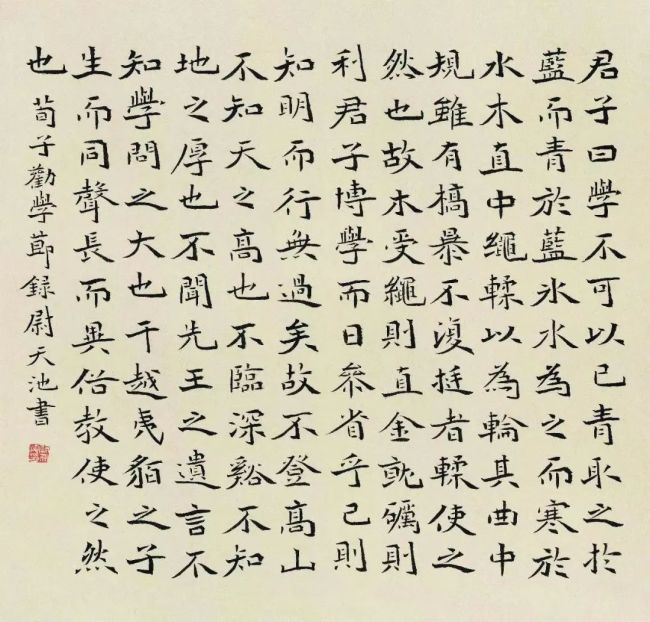 君子曰學不可以已青取之於
藍而青於藍氷水為之而寒於
水木直中繩輮以為輪其曲中
規雖有槁暴不復挺者輮使之
然也故木受繩則直金就礪則
利君子博學而日參省乎己則
知明而行無過矣故不登高山
不知天之高也不臨深谿不知
地之厚也不聞先王之遺言不
知學問之大也干越夷貉之子
生而同聲長而異俗教使之然
也
荀子勸學節錄尉天池書